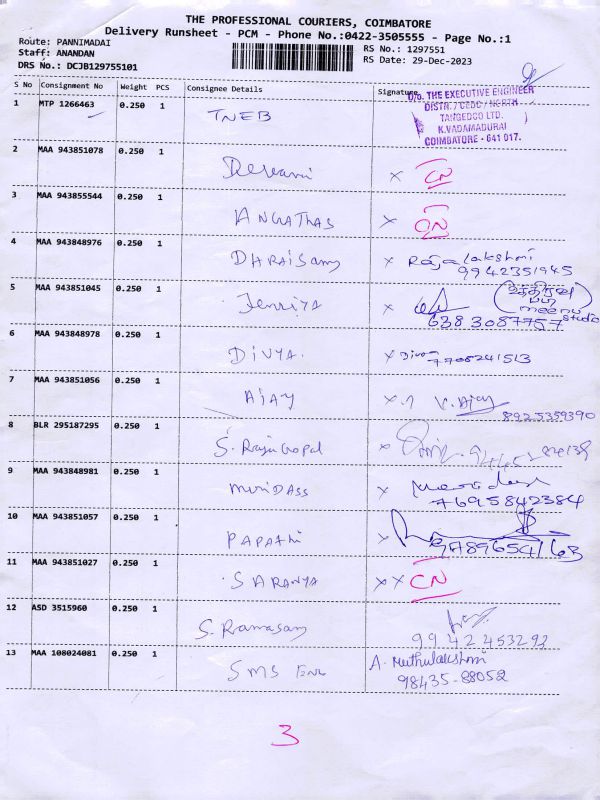 THE PROFESSIONAL COURIERS, COIMBATORE
Delivery Runsheet - PCM - Phone No.:0422-3505555 - Page No.:1
Route: PANNIMADAI
Staff: ANANDAN
DRS No.: DCJB129755101
RS No.: 1297551
RS Date: 29-Dec-2023
S No Consignment No Weight PCS Consignee Details Signature
O/o. THE EXECUTIVE ENGINEER
DISTR. / CEDC / NORTH
TANGEDCO LTD.
K.VADAMADURAI
COIMBATORE - 641 017.
1 MTP 1266463 0.250 1 TNEB
2 MAA 943851078 0.250 1 x CN
3 MAA 943855544 0.250 1 x CN
4 MAA 943848976 0.250 1 DHRAISamy x Rajalakshmi
9942351945
5 MAA 943851045 0.250 1 Jenriya x
meenu
studio
6383087757
6 MAA 943848978 0.250 1 DIVYA. x Divya 7708241513
7 MAA 943851056 0.250 1 AJAY x V. Ajay
8925359390
8 BLR 295187295 0.250 1 S. Rajagopal x
9 MAA 943848981 0.250 1 muriDASS x
7695842384
10 MAA 943851057 0.250 1 PAPATHI x
9789654163
11 MAA 943851027 0.250 1 SARANYA x x CN
12 ASD 3515960 0.250 1 S. Ramasamy
9942453292
13 MAA 108024081 0.250 1 SMS Eng A. Muthulakshmi
98435-88052
3